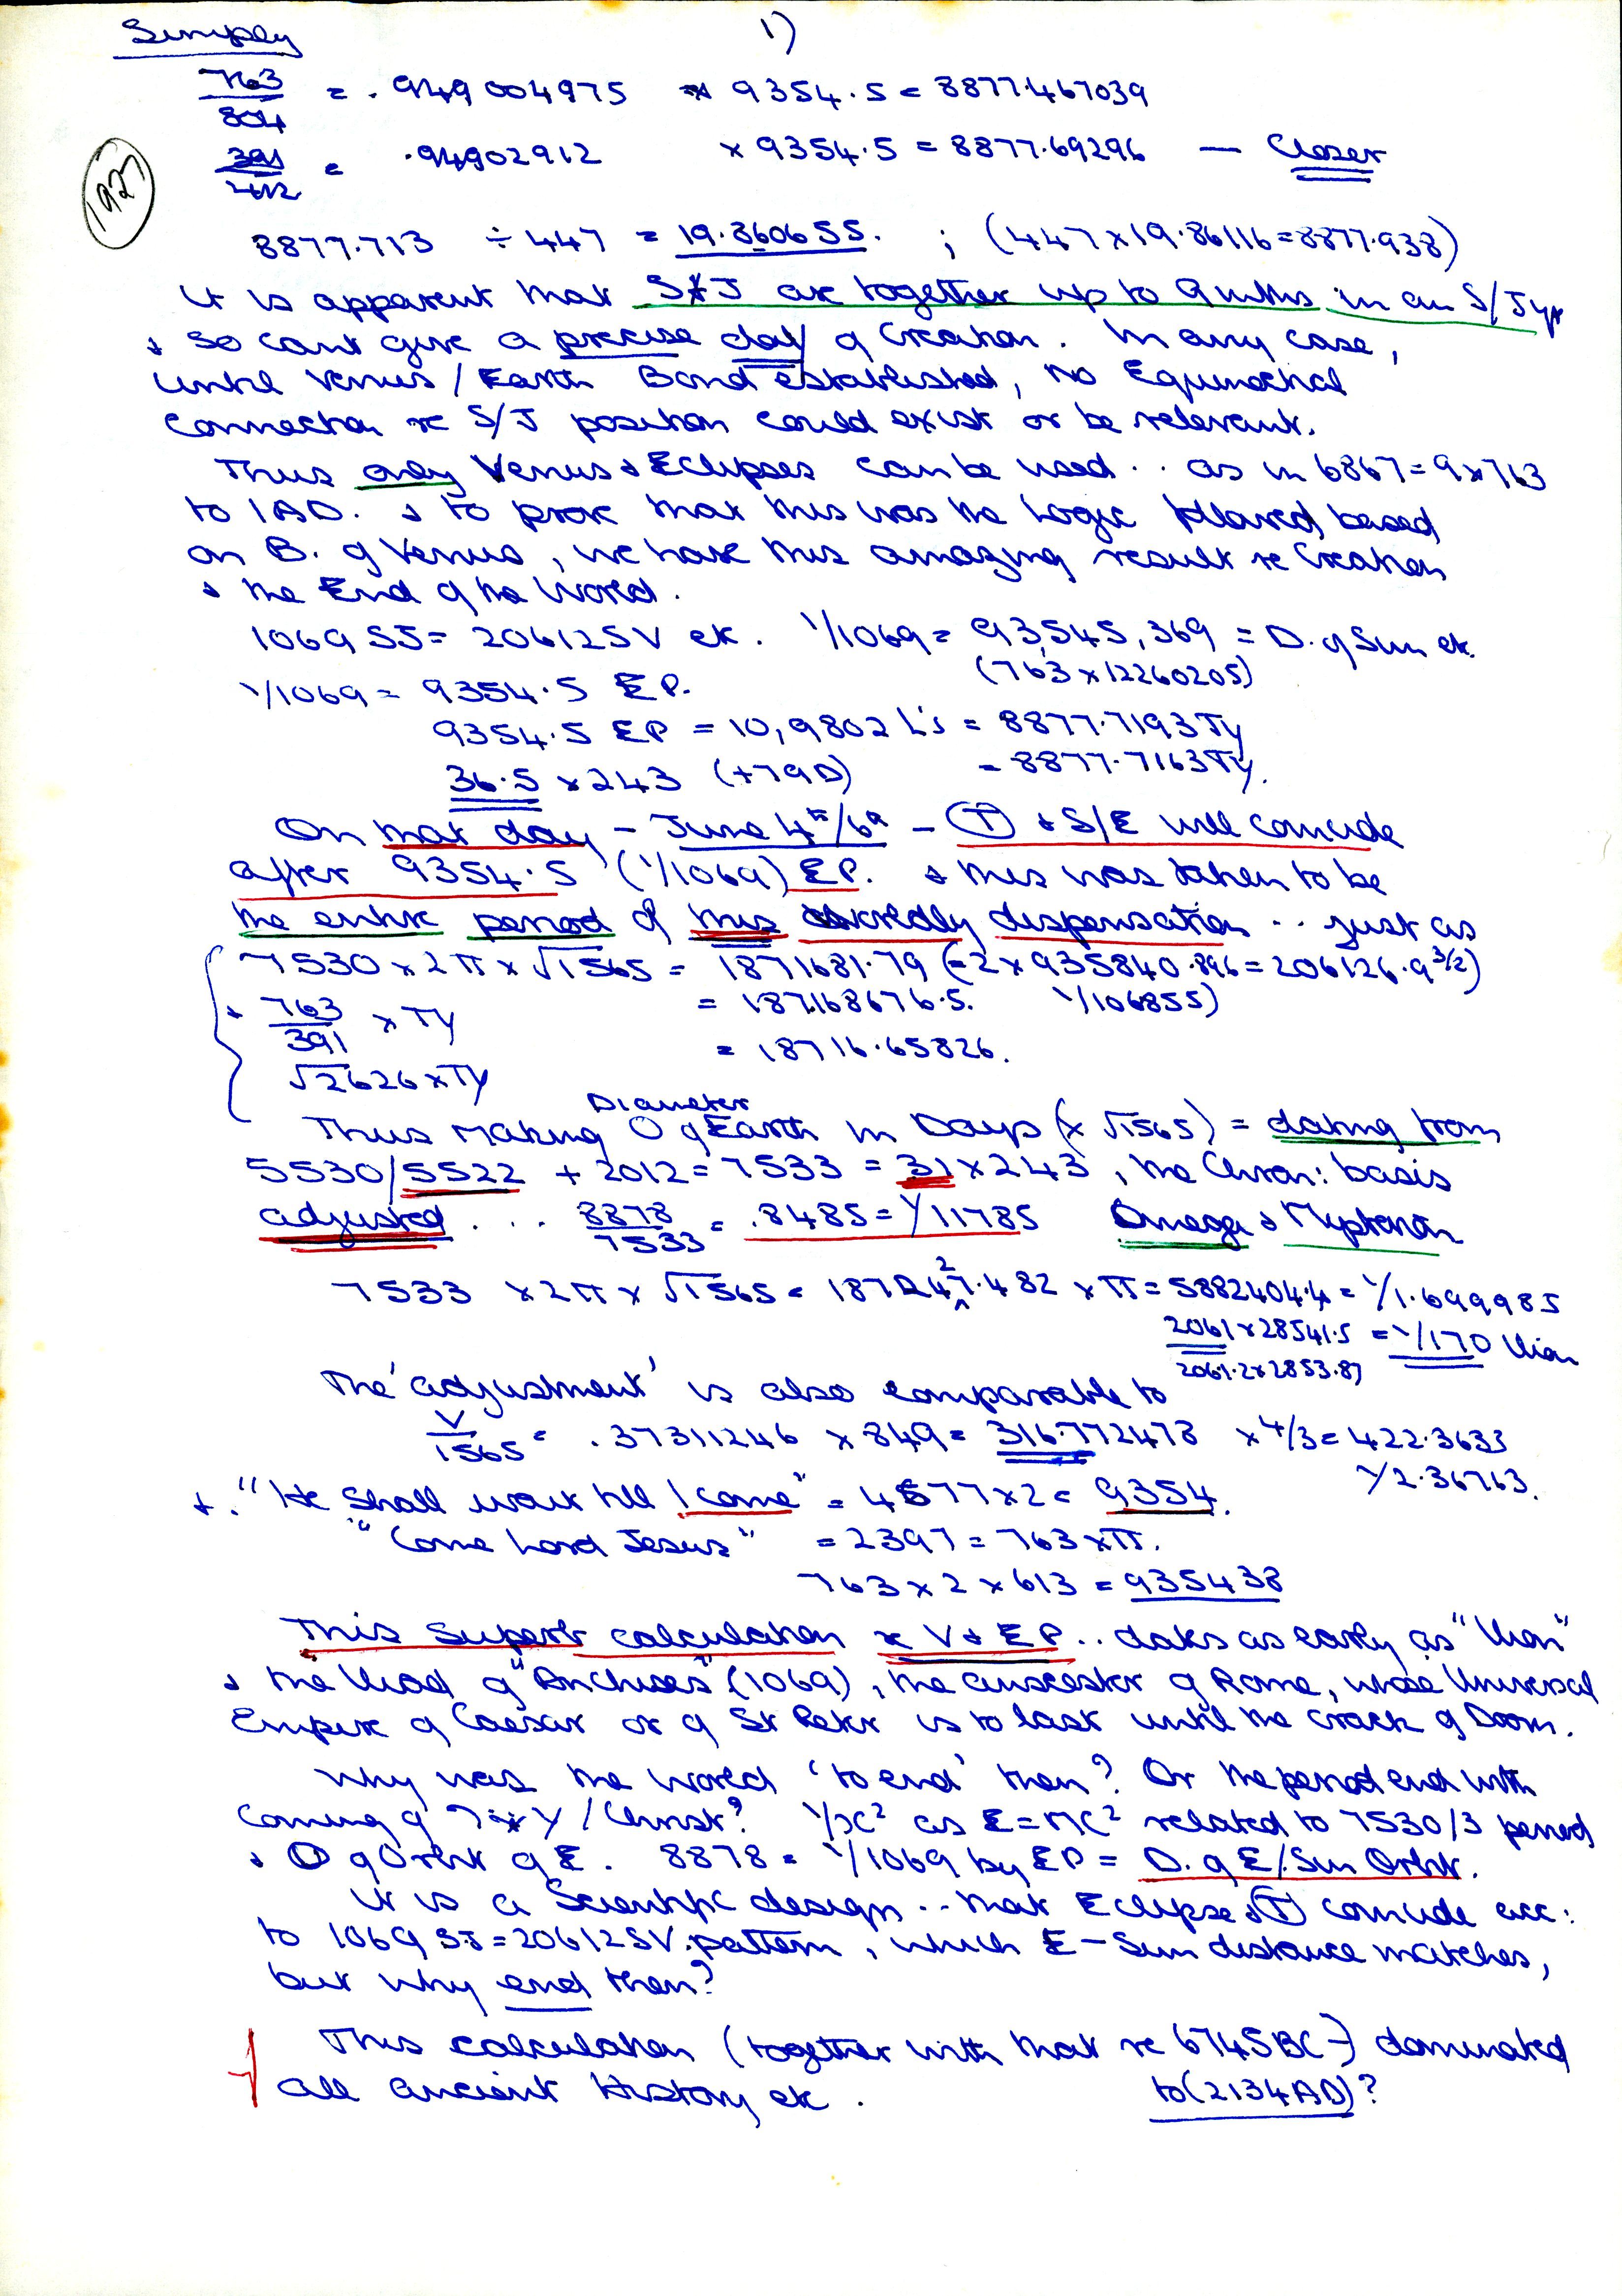 Simply
1)
763/804 = .949004975 × 9354.5 = 8877.467039
391/412 = .94902912 × 9354.5 = 8877.69296 — Closer
1927
8877.713 ÷ 447 = 19.860655. ; (447×19.86116=8877.938)
It is apparent that S/J are together up to 9 mths in an S/J yr
& so cant give a precise day of Creation. In any case,
until Venus/Earth Bond established, no Equinoctial
connection re S/J position could exist or be relevant.
Thus only Venus & Eclipses can be used .. as in 6867=9×763
to 1AD. & to prove that this was the logic followed, based
on B. of Venus, we have this amazing result re Creation
& the End of the World.
1069 SJ = 206125V etc. 1/1069 = 93,545,369 = D. of Sun etc.
(763×12260205)
1/1069 = 9354.5 EP.
9354.5 EP = 10,9802 L's = 8877.7193Ty
36.5 × 243 (+79D) = 8877.7163Ty.
On that day – June 4th/6th – T & S/E will coincide
after 9354.5 (1/1069) EP. & this was taken to be
the entire period of this worldly dispensation .. just as
7530 × 2π × √1565 = 1871681.79 (=2×935840.896=206126.9^3/2)
& 763/391 × TY = 187168676.5. 1/106855)
= 18716.65826.
√2626×Ty
Diameter
Thus making O of Earth in Days (× √1565) = dating from
5530/5522 + 2012 = 7533 = 31×243, the Chron: basis
adjusted ... 8878/7533 = .8485 = 1/11785 Omega &
7533 × 2π × √1565 = 1872427.482 × π = 5882404.4 = 1/1.699985
2061×28541.5 = 1/170
2061.2×2853.87
The 'adjustment' is also comparable to
V/1565 = .37311246 × 849 = 316.772478 × 4/3 = 422.3633
1/2.36763.
+. "He shall wait till I come" = 4677×2 = 9354.
"Come Lord Jesus" = 2397 = 763×π.
763 × 2 × 613 = 935438
This Superb calculation re V & EP .. dates as early as
& the Iliad of "Anchises" (1069), the ancestor of Rome, whose Universal
Empire of Caesar or of St Peter is to last until the crack of Doom.
Why was the world 'to end' then? Or the period end with
coming of /Christ? 1/x² as E=MC² related to 7530/3 period
& O of Orbit of E. 8878 = 1/1069 by EP = D. of E/Sun Orbit.
It is a Scientific design .. that Eclipse & T coincide acc:
to 1069 SJ = 206125V. pattern, which E–Sun distance matches,
but why end then?
This calculation (together with that re 6745BC–) dominated
all ancient History etc. to (2134AD)?